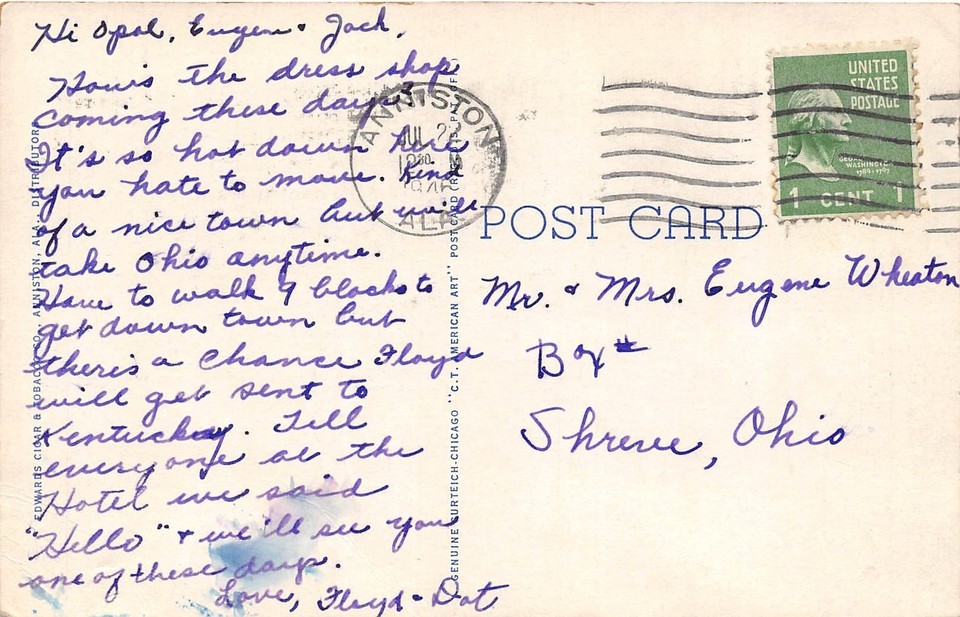 Hi Opal, Eugene & Jack,
How's the dress shop
coming these days?
It's so hot down here
you hate to move. Kind
of a nice town but we'll
take Ohio anytime.
Have to walk 9 blocks to
get down town but
there's a chance Floyd
will get sent to
Kentucky. Tell
everyone at the
Hotel we said
"Hello" & we'll see you
one of these days.
Love, Floyd & Dot
EDWARDS CIGAR & TOBACCO CO., ANNISTON, ALA., DISTRIBUTOR
GENUINE CURTEICH-CHICAGO "C.T. AMERICAN ART" POST CARD (REG. U.S. PAT. OFF.)
ANNISTON
JUL 22
12 30 PM
ALA.
UNITED
STATES
POSTAGE
GEORGE
WASHINGTON
1789-1797
1 CENT 1
POST CARD
Mr. & Mrs. Eugene Wheaton
Box #
Shreve, Ohio